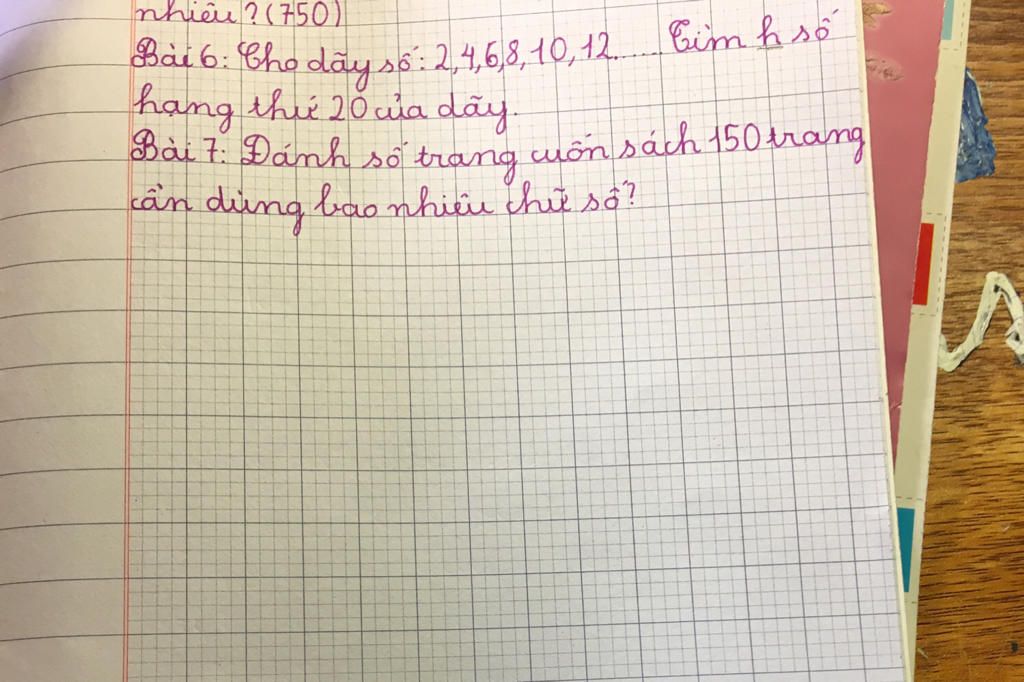 nhiêu? (750)
Bài 6: Cho dãy số: 2,4,6,8,10,12...... Tìm h số
hạng thứ 20 của dãy.
Bài 7: Đánh số trang cuốn sách 150 trang
cần dùng bao nhiêu chữ số?